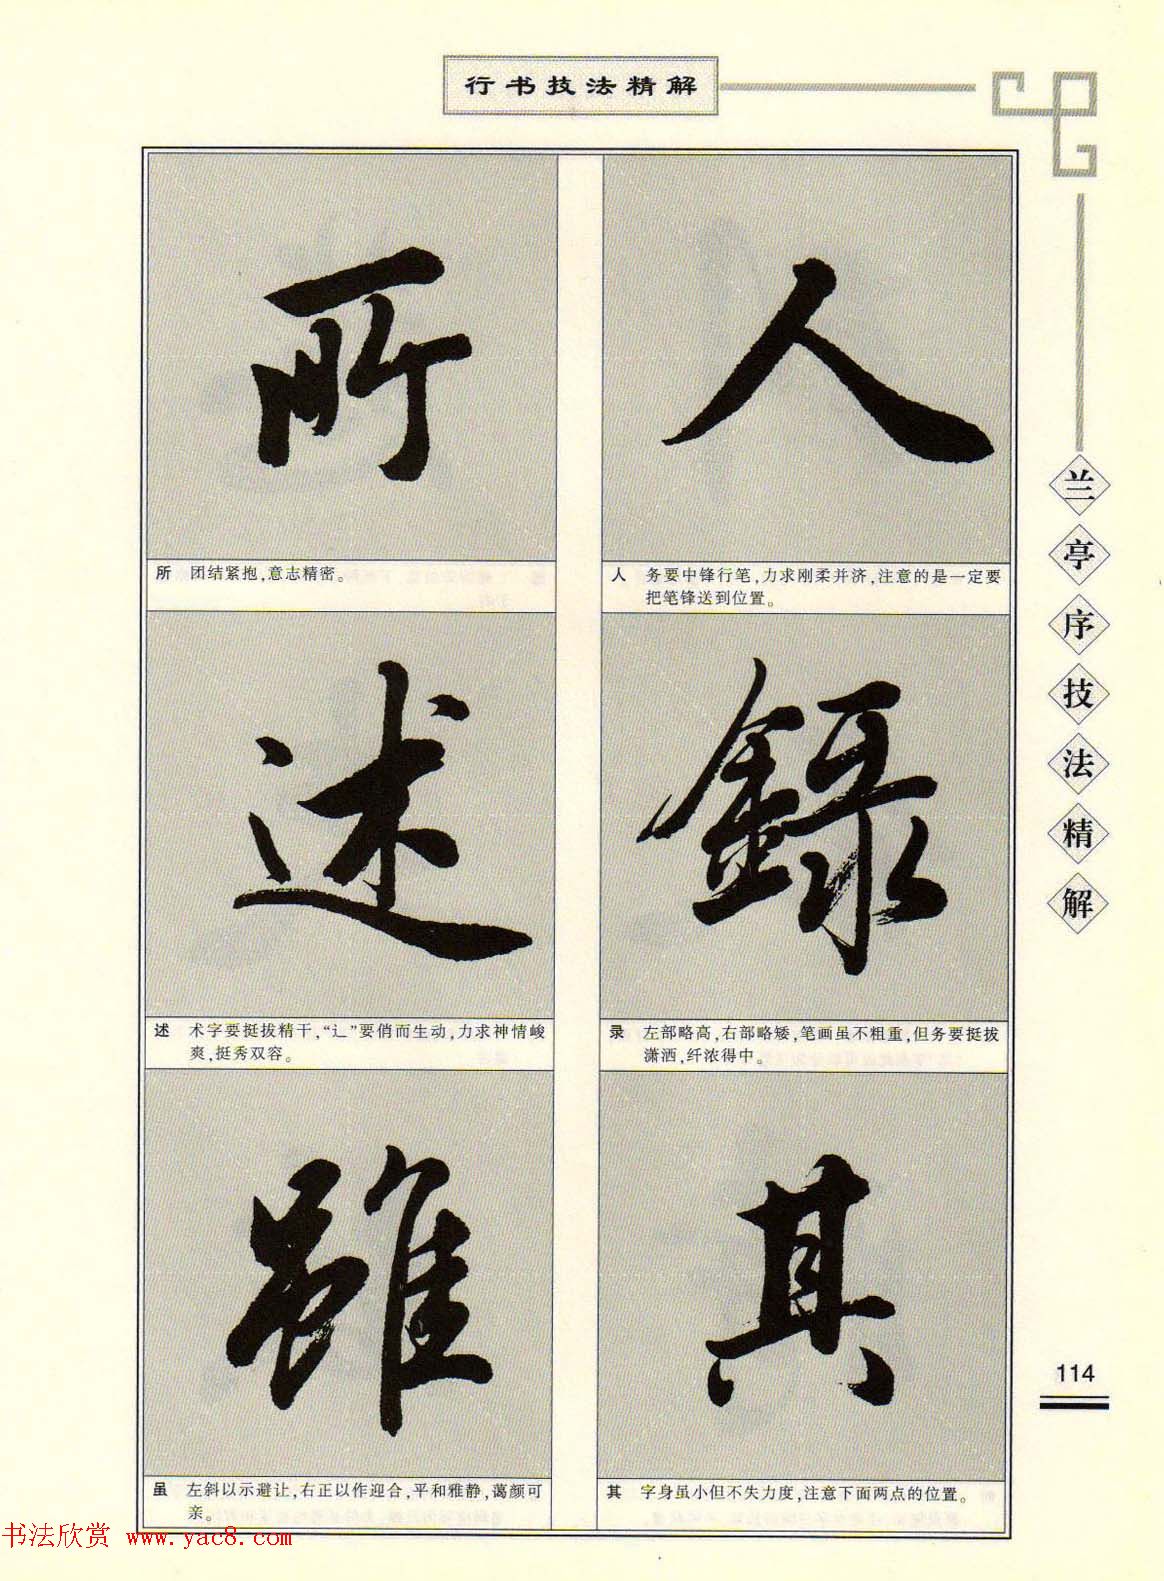 行书技法精解
人
人 务要中锋行笔,力求刚柔并济,注意的是一定要
把笔锋送到位置。
錄
录 左部略高,右部略矮,笔画虽不粗重,但务要挺拔
潇洒,纤浓得中。
其
其 字身虽小但不失力度,注意下面两点的位置。
所
所 团结紧抱,意志精密。
述
述 术字要挺拔精干,“辶”要俏而生动,力求神情峻
爽,挺秀双容。
雖
虽 左斜以示避让,右正以作迎合,平和雅静,蔼颜可
亲。
兰亭序技法精解
114
书法欣赏 www.yac8.com